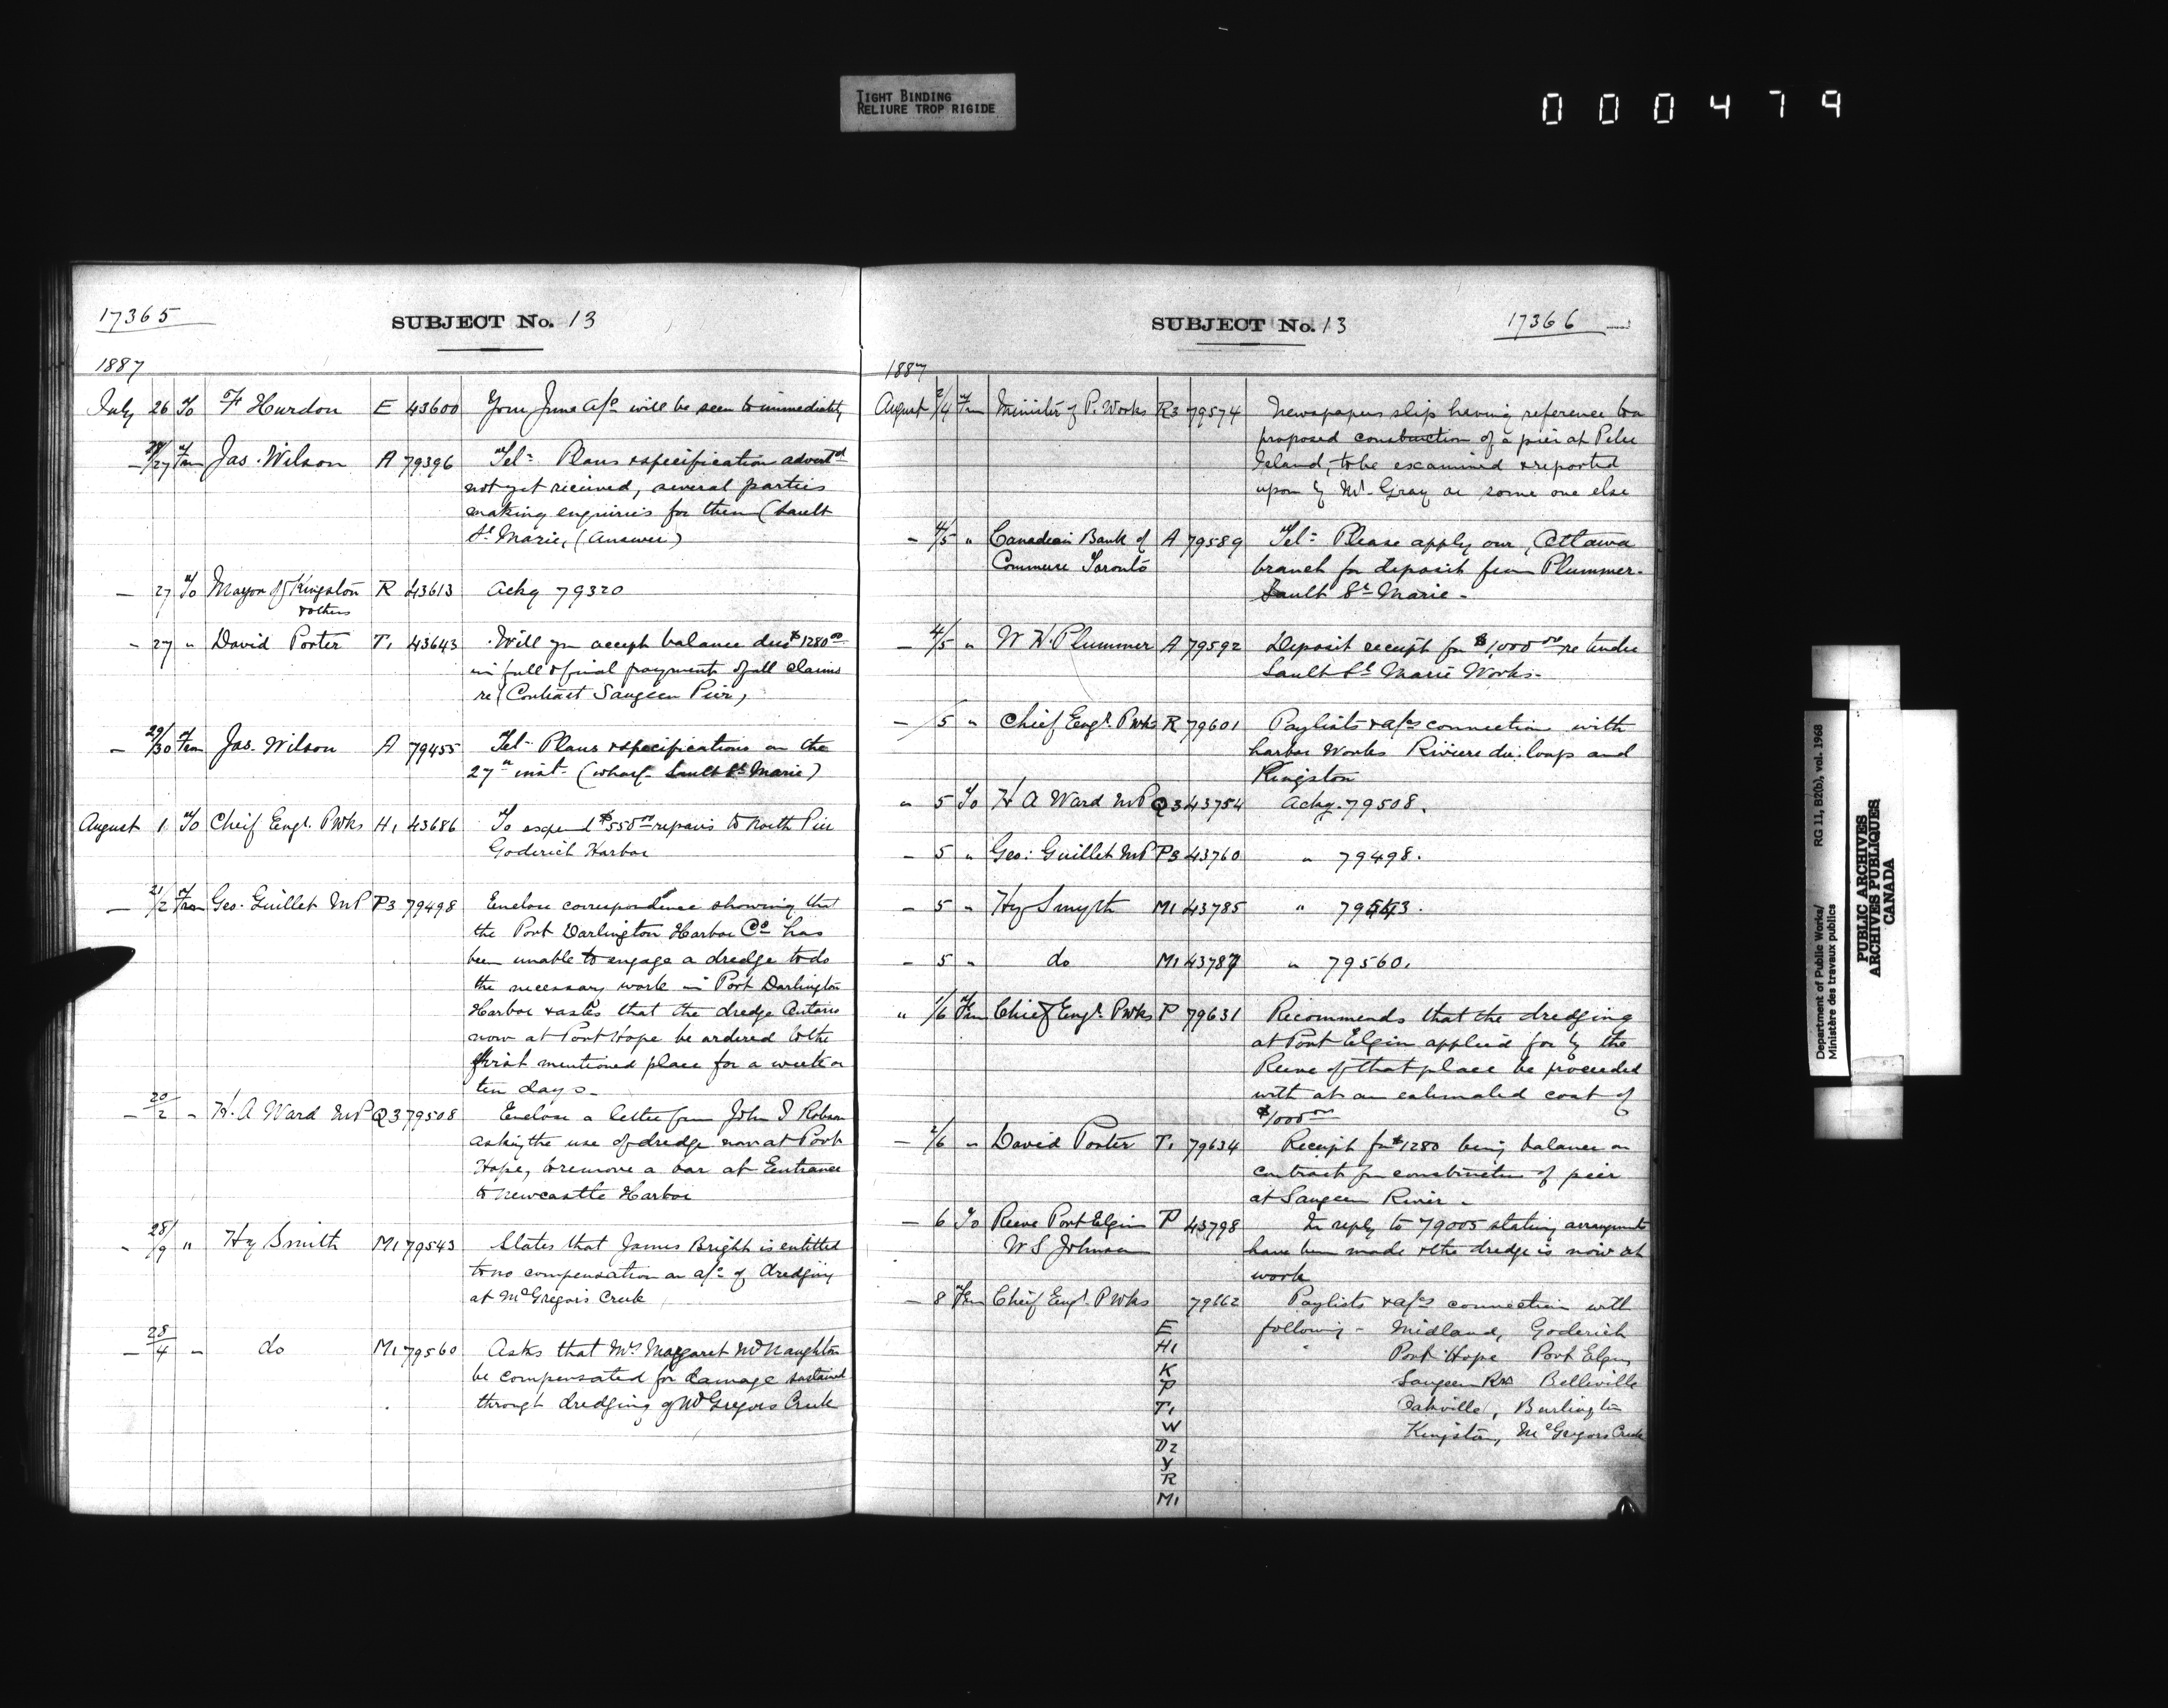 TIGHT BINDING
RELIURE TROP RIGIDE
000479
17365
SUBJECT No. 13
1887
July 26 To F Hurdon E 43600 Your June a/c will be seen to immediately
- 28/27 From Jas. Wilson A 79396 Tel: Plans & specification advertd
not yet received, several parties
making enquiries for them (Sault
St Marie, (Answer)
- 27 To Mayor of Kingston R 43613 Ackg 79320
& others
- 27 " David Porter T1 43643 Will you accept balance due $1280.00
in full & final payment of all claims
re (Contract Saugeen Pier,
- 29/30 From Jas. Wilson A 79455 Tel: Plans & specifications on the
27th inst. (Wharf Sault St Marie)
August 1 To Cheif Engr. P Wks H1 43686 To expend $550.00 repairs to North Pier
Goderich Harbor
- 21/2 From Geo. Guillet M P P3 79498 Enclose correspondence showing that
the Port Darlington Harbor Co has
been unable to engage a dredge to do
the necessary work in Port Darlington
Harbor & asks that the dredge Ontario
now at Port Hope be ordered to the
first mentioned place for a week or
ten days -
- 20/2 - H. A Ward M P Q3 79508 Enclose a letter from John T Robson
asking the use of dredge now at Port
Hope, to remove a bar at Entrance
to Newcastle Harbor
- 28/9 " Hy Smith M1 79543 States that James Bright is entitled
to no compensation on a/c of dredging
at McGregors Creek
- 28/4 - do M1 79560 Asks that Mrs Margaret McNaughton
be compensated for damage sustained
through dredging of McGregors Creek
SUBJECT No. 13
17366
1887
August 2/4 From Minister of P. Works R3 79574 Newspaper slip having reference to a
proposed construction of a pier at Pelee
Island, to be examined & reported
upon by Mr. Gray or some one else
- 4/5 " Canadian Bank of A 79589 Tel: Please apply our, Ottawa
Commerce Toronto branch for deposit from Plummer.
Sault St Marie -
- 4/5 " W H. Plummer A 79592 Deposit receipt for $1,000.00 re tender
Sault St Marie Works -
- /5 " Chief Engr. P Wks R 79601 Paylists & a/cs connection with
harbor Works Riviere du loup and
Kingston
" 5 To H A Ward M P Q3 43754 Ackg. 79508.
- 5 " Geo: Guillet M P P3 43760 " 79498.
- 5 " Hy Smyth M1 43785 " 79543.
- 5 " do M1 43787 " 79560.
" 1/6 From Chief Engr. P Wks P 79631 Recommends that the dredging
at Port Elgin applied for by the
Reeve of that place be proceeded
with at an estimated cost of
$1000.00
- 2/6 " David Porter T1 79634 Receipt for $1280 being balance on
contract for construction of pier
at Saugeen River -
- 6 To Reeve Port Elgin P 43798 In reply to 79005 stating arrangements
W S Johnson have been made & the dredge is now at
work
- 8 From Cheif Engr P Wks 79662 Paylists & a/cs connection with
E following - Midland, Goderich
H1 Port Hope Port Elgin
K Saugeen Rvr Belleville
P
T1 Oakville, Burlington
W Kingston, McGregors Creek
D2
Y
R
M1
Department of Public Works/
Ministère des travaux publics
RG 11, B2(b), vol. 1968
PUBLIC ARCHIVES
ARCHIVES PUBLIQUES
CANADA